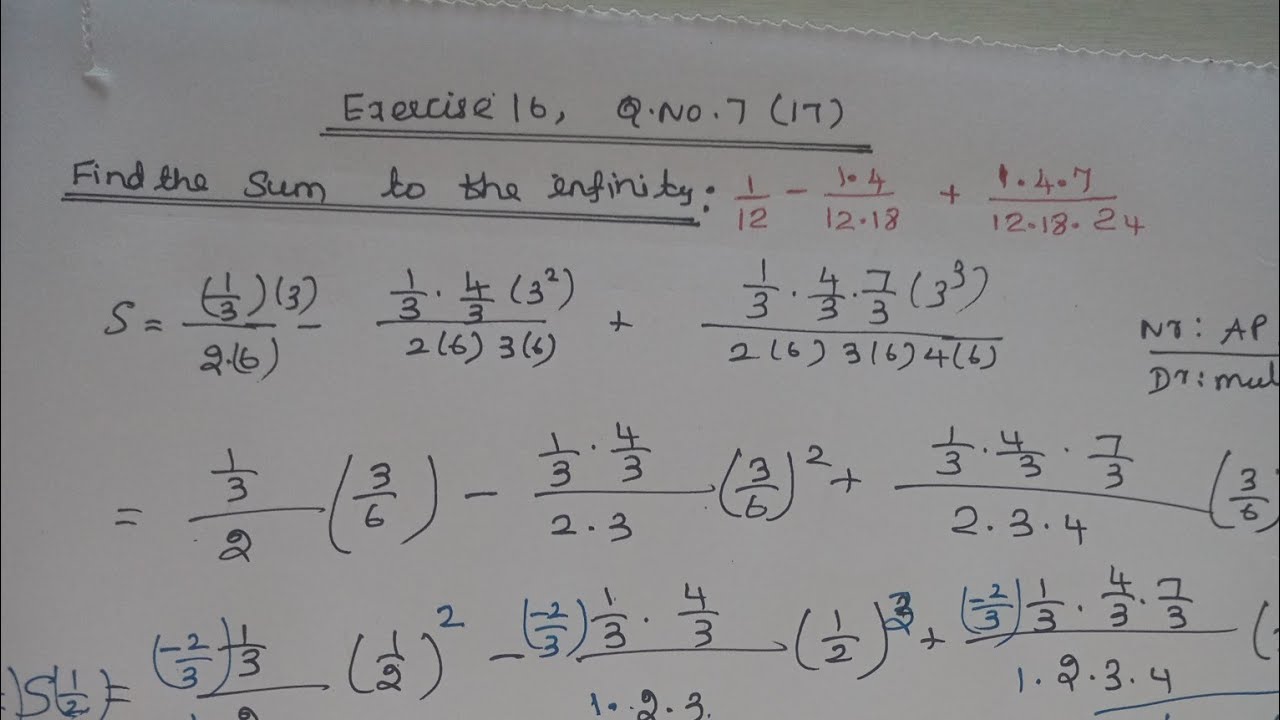 Exercise 16, Q.No.7 (17)
Find the Sum to the infinity: 1/12 - 1.4/12.18 + 1.4.7/12.18.24
S = (1/3)(3)/2.(6) - 1/3 . 4/3 (3²)/2(6) 3(6) + 1/3 . 4/3 . 7/3 (3³)/2(6) 3(6) 4(6)
Nr: AP
Dr: mul
= 1/3/2 (3/6) - 1/3 . 4/3/2.3 (3/6)² + 1/3 . 4/3 . 7/3/2.3.4 (3/6
S(1/2) = (-2/3) 1/3/2 (1/2)² - (-2/3) 1/3 . 4/3/1.2.3. (1/2)³ + (-2/3) 1/3 . 4/3 . 7/3/1.2.3.4 (